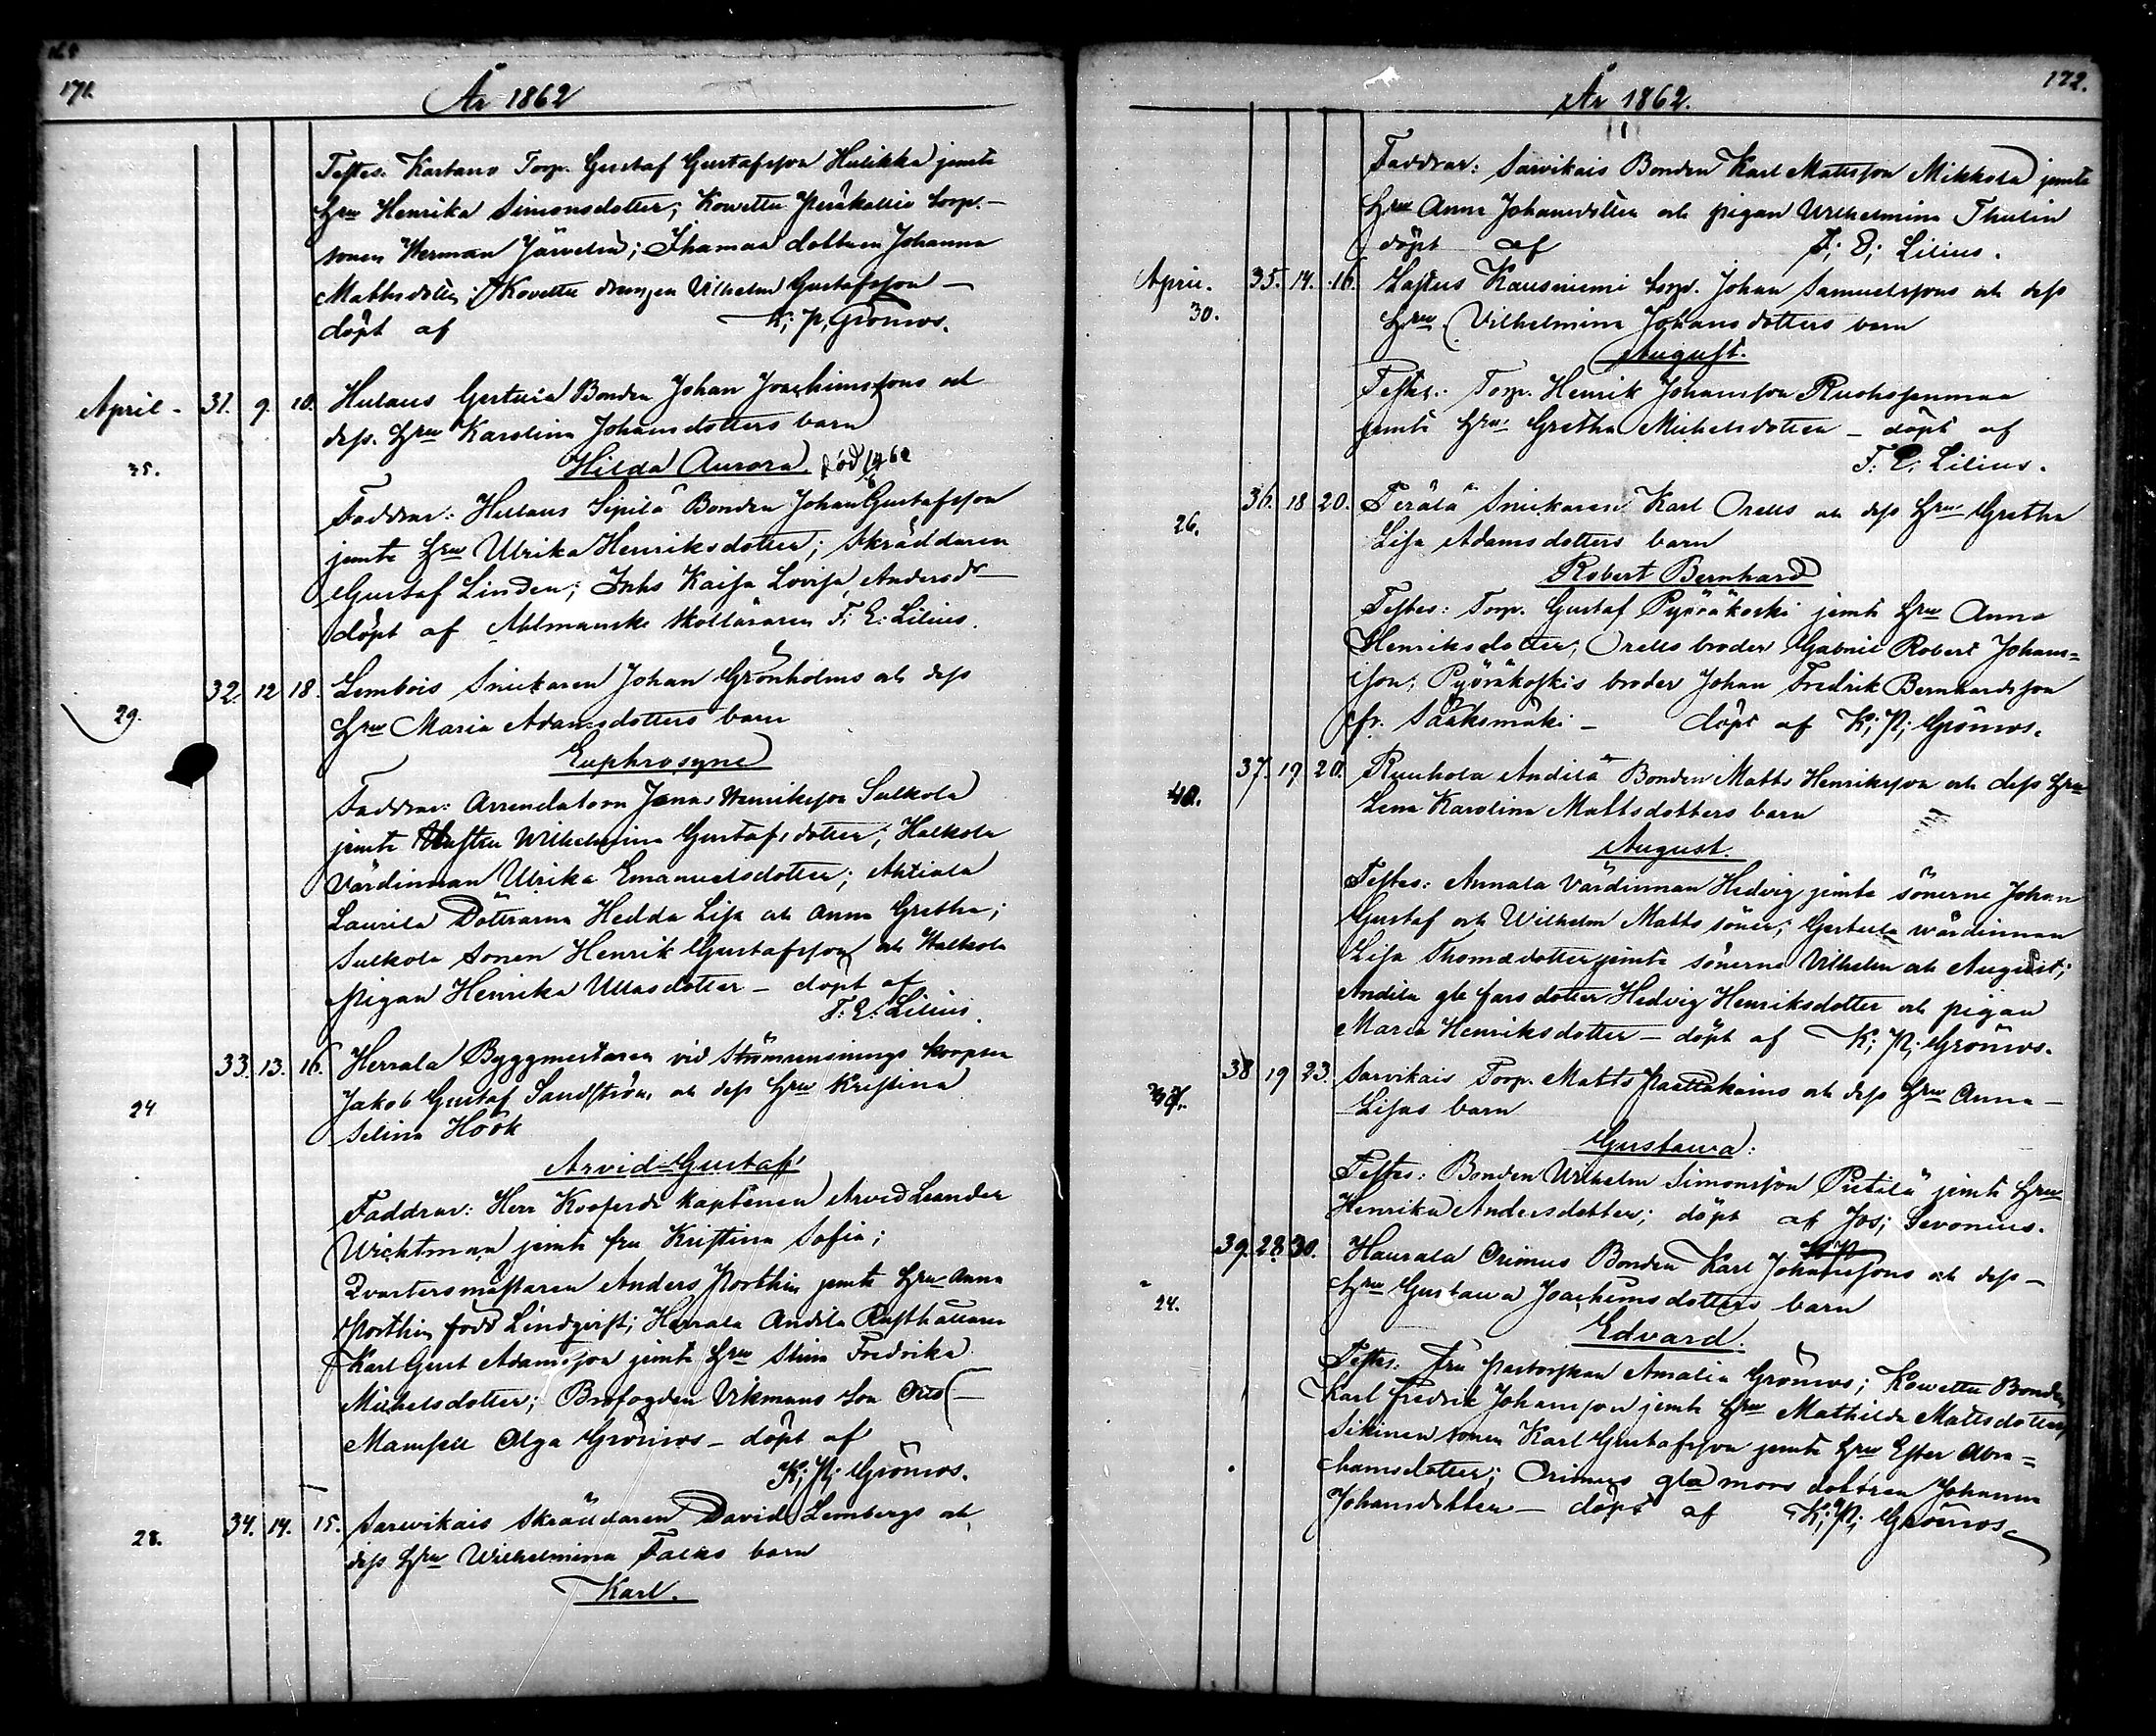 171.
År 1862
Testes. Kartano Torp. Gustaf Gustafsson Hulikka jemte
Hru Henrika Simonsdotter; Kowettu Peräkallio torp.-
sonen Herman Järvelin; Ihamaa dottren Johanna
Mattsdotter; Kovettu drengen Vilhelm Gustafsson —
döpt af K; P; Grönros.
April - 31. 9. 10. Hulaus Gertula Bonden Johan Joachimssons och
dess Hru Karolina Johansdotters barn
35. Hilda Aurora. död 62
Faddrar: Hulaus Sipilä Bonden Johan Gustafsson
jemte Hru Ulrika Henriksdotter; Skräddaren
Gustaf Linden; Inhs Kaisa Lovisa Andersdr —
döpt af Ahlmanske Skolläraren F; E: Lilius.
32. 12 18. Lembois Snickaren Johan Grönholms och dess
29. Hru Maria Adamsdotters barn
Euphrosyne
Faddrar: Arrendatorn Jonas Henriksson Sulkola
jemte Hustru Wilhelmina Gustafsdotter; Halkola
Värdinnan Ulrika Emanuelsdotter; Ahtiala
Laurila Döttrarna Hedda Lisa och Anna Gretha;
Sulkola Sonen Henrik Gustafsson och Halkola
Pigan Henrika Ullasdotter — döpt af
F: E: Lilius.
33. 13. 16. Herrala Byggmestaren vid Strömrensnings korpsen
24 Jakob Gustaf Sandström och dess Hru Kristina
Selina Höök
Arvid Gustaf
Faddrar: Herr Kooferdi kaptenen Arved Leander
Wichtman jemte fru Kristina Sofia;
Qvartersmästaren Anders Porthin jemte Hru Anna
Porthin född Lindqvist; Herrala Andila Rusthållaren
Karl Gust Adamsson jemte Hru Stina Fredrika
Michelsdotter; Brofogden Vikmans Son Otto —
Mamsell Olga Grönros — döpt af
K; P; Grönros.
34. 14. 15. Sarvikais Skräddaren David Lembergs och
28. dess Hru Wilhelmina Falks barn
Karl.
172.
År 1862.
Faddrar: Sarvikais Bonden Karl Mattsson Mikkola jemte
Hru Anna Johansdotter och pigan Wilhelmina Thulin
döpt af F; E; Lilius.
April. 35. 14. 16. Lastus Kausniemi torp. Johan Samuelssons och dess
30. Hru Vilhelmina Johansdotters barn
August.
Testes: Torp. Henrik Johansson Ruohosenmaa
jemte Hru Gretha Michelsdotter — döpt af
F. E. Lilius.
36. 18 20. Perälä Snickaren Karl Orells och dess Hru Gretha
26. Lisa Adamsdotters barn
Robert Bernhard
Testes: Torp. Gustaf Pyöräkoski jemte Hru Anna
Henriksdotter; Orells broder Gabriel Robert Johans=
son; Pyöräkoskis broder Johan Fredrik Bernhardsson
fr. Sääksmäki — döpt af K; P; Grönros.
37. 19 20. Ruuhola Andila Bonden Matts Henriksson och dess Hru
40. Lena Karolina Mattsdotters barn
August.
Testes: Annala värdinnan Hedvig jemte sönerne Johan
Gustaf och Wilhelm Matts söner; Gertula wärdinnan
Lisa Thomædotter jemte sönerna Vilhelm och August;
Andila gla fars dotter Hedvig Henriksdotter och pigan
Maria Henriksdotter — döpt af K; P; Grönros.
38 19 23. Sarvikais Torp. Matts Paattakains och dess Hru Anna —
Lisas barn
Gustava.
Testes: Bonden Wilhelm Simonsson Pietilä jemte Hru
Henrika Andersdotter; döpt af Jos; Sevonius.
39. 28. 30. Haurala Orimus Bonden Karl Johanssons och dess —
24. Hru Gustava Joachimsdotters barn
Edvard.
Testes. Fru Pastorskan Amalia Grönros; Kowettu Bonden
Karl Fredrik Johansson jemte Hru Mathilda Mattsdotter;
Sikinen sonen Karl Gustafsson jemte Hru Ester Abra=
hamsdotter; Orimus gla mors dottren Johanna
Johansdotter — döpt af K; P; Grönros.